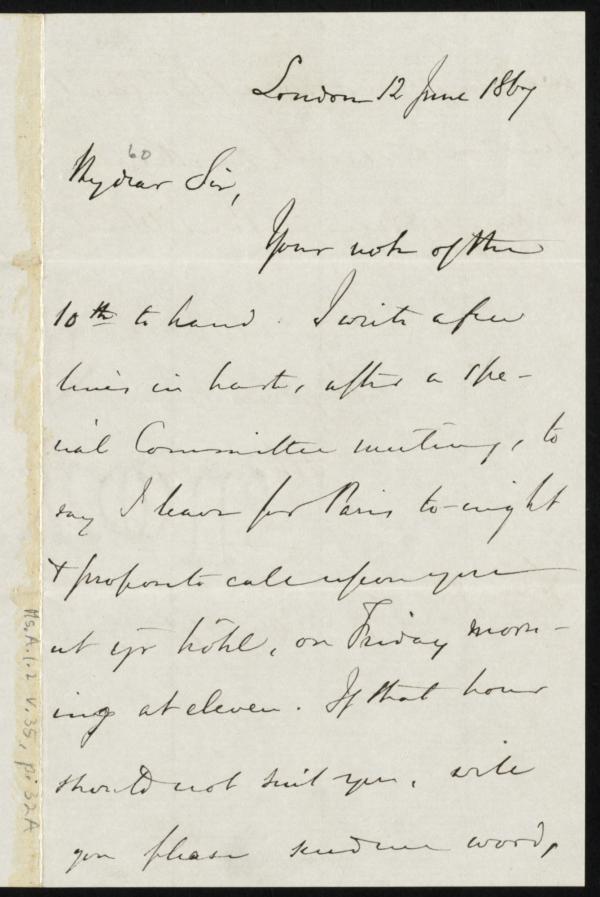 London 12 June 1867
60
My dear Sir,
Your note of the
10th to hand. I write a few
lines in haste, after a spe-
cial Committee meeting, to
say I leave for Paris to-night
& propose to call upon you
at yr hôtel, on Friday morn-
ing at eleven. If that hour
should not suit you, will
you please send me word,
Ms.A.1.2 v.35, p.32A